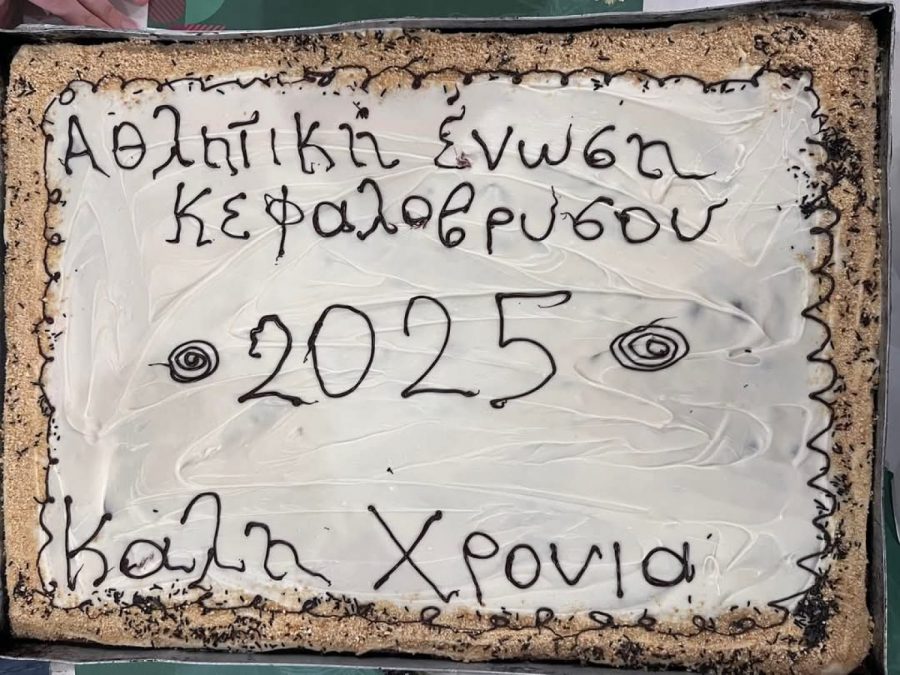 Αθλητικη ένωση
Κεφαλοβρυσου
2025
Καλη Χρονια